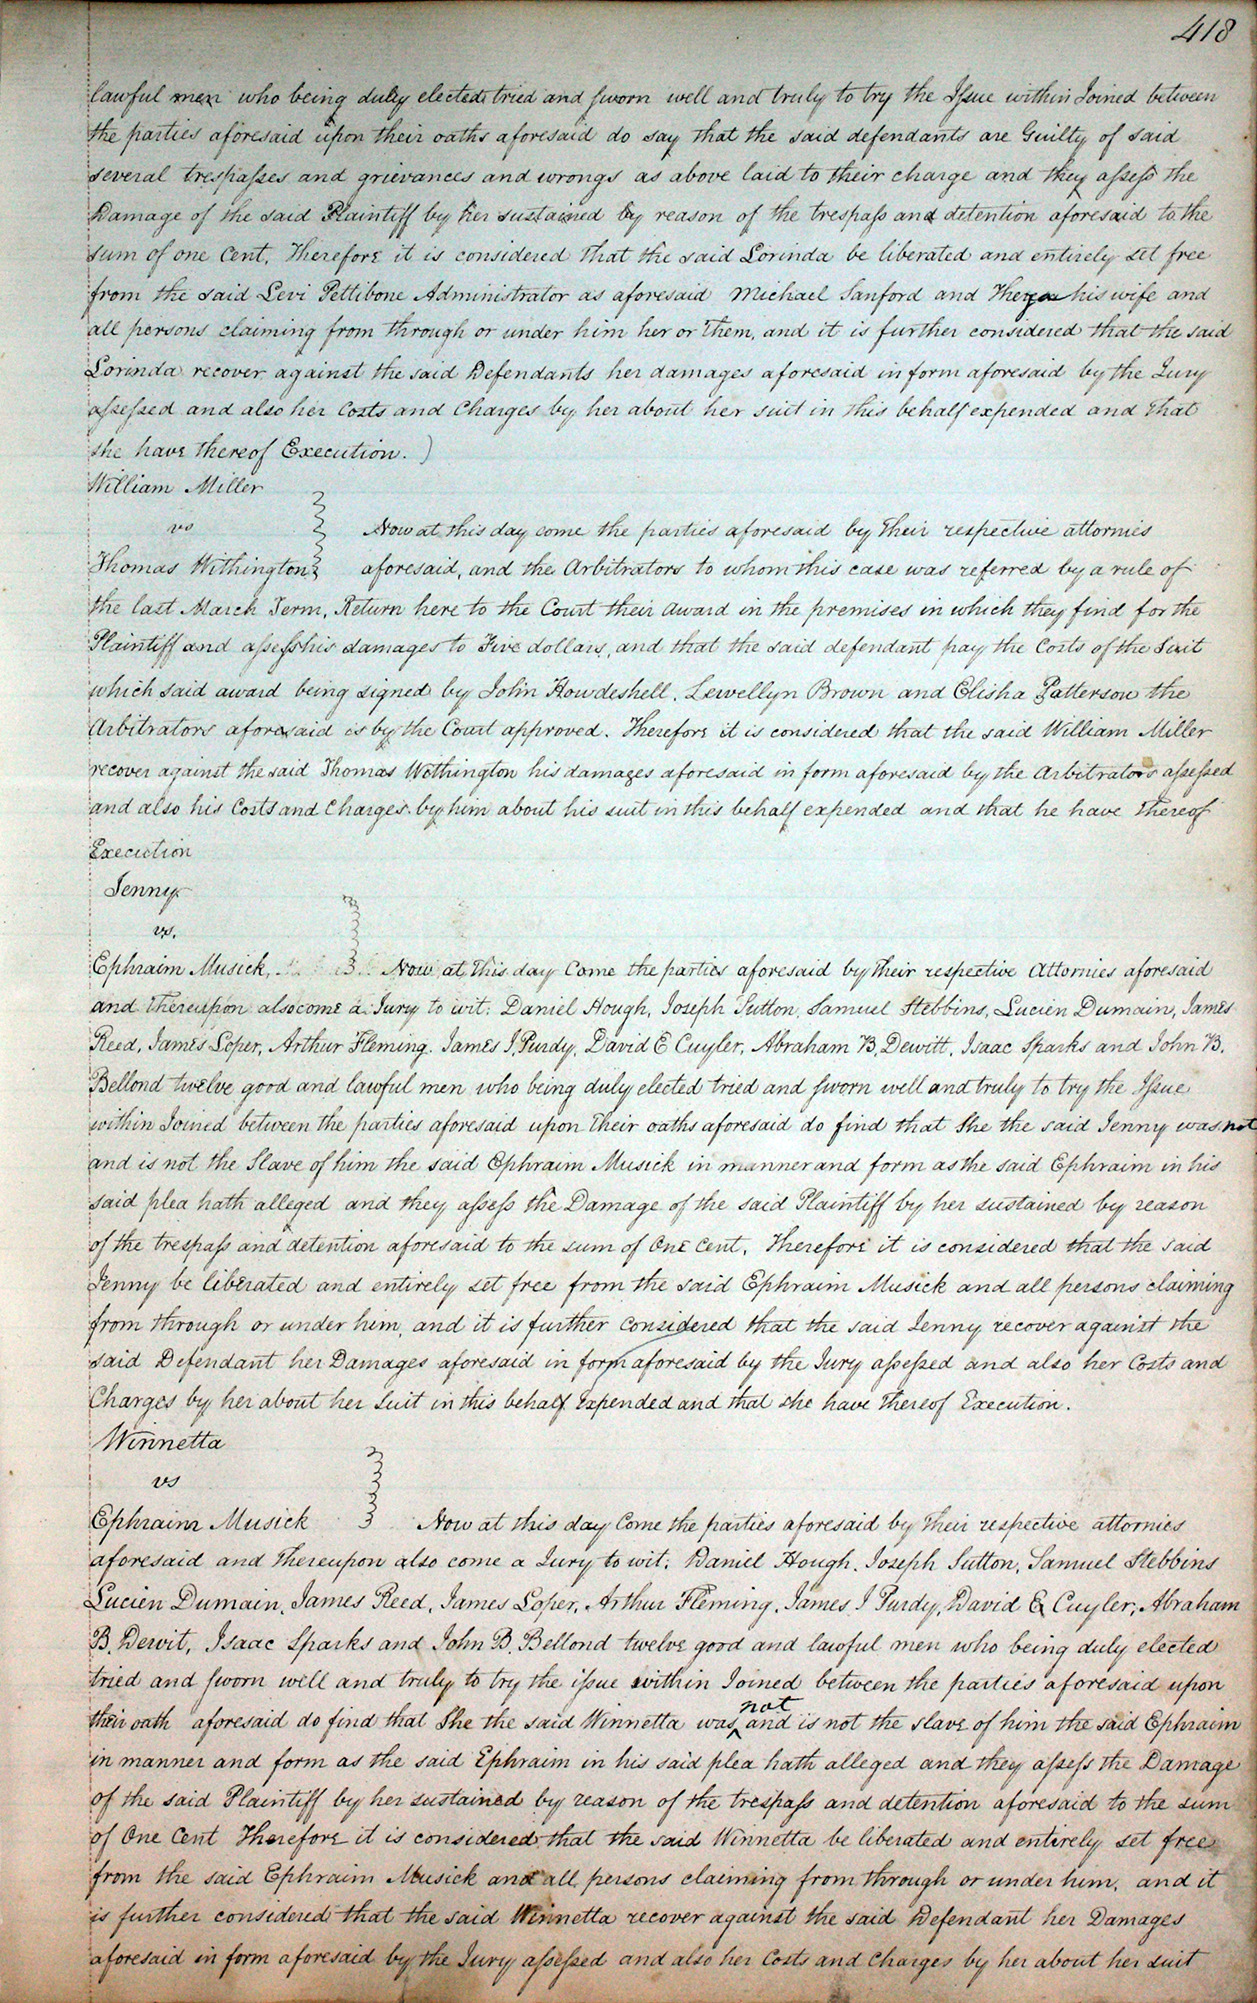 418
lawful men who being duly elected tried and sworn well and truly to try the Issue within Joined between
the parties aforesaid upon their oaths aforesaid do say that the said defendants are Guilty of said
several trespasses and grievances and wrongs as above laid to their charge and they assess the
Damage of the said Plaintiff by her sustained by reason of the trespass and detention aforesaid to the
sum of one Cent. Therefore it is considered that the said Lorinda be liberated and entirely set free
from the said Levi Pettibone Administrator as aforesaid Michael Sanford and his wife and
all persons claiming from through or under him her or them, and it is further considered that the said
Lorinda recover against the said Defendants her damages aforesaid in form aforesaid by the Jury
assessed and also her Costs and Charges by her about her suit in this behalf expended and that
she have thereof Execution.)
William Miller
vs
Now at this day come the parties aforesaid by their respective attornies
Thomas Withington
aforesaid, and the Arbitrators to whom this case was referred by a rule of
the last March Term, Return here to the Court their award in the premises in which they find for the
Plaintiff and assess his damages to Five dollars, and that the said defendant pay the Costs of the Suit
which said award being signed by John Howdeshell, Lewellyn Brown and Elisha Patterson the
Arbitrators aforesaid is by the Court approved. Therefore it is considered that the said William Miller
recover against the said Thomas Withington his damages aforesaid in form aforesaid by the Arbitrators assessed
and also his Costs and Charges by him about his suit in this behalf expended and that he have thereof
Execution
Jenny
vs.
Ephraim Musick, Now at this day Come the parties aforesaid by their respective Attornies aforesaid
and thereupon also come a Jury to wit: Daniel Hough, Joseph Sutton, Samuel Stebbins, Lucien Dumain, James
Reed, James Loper, Arthur Fleming, James J. Purdy, David E Cuyler, Abraham B. Dewitt, Isaac Sparks and John B.
Bellond twelve good and lawful men who being duly elected tried and sworn well and truly to try the Issue
within Joined between the parties aforesaid upon their oaths aforesaid do find that She the said Jenny was not
and is not the Slave of him the said Ephraim Musick in manner and form as the said Ephraim in his
said plea hath alleged and they assess the Damage of the said Plaintiff by her sustained by reason
of the trespass and detention aforesaid to the sum of One Cent. Therefore it is considered that the said
Jenny be liberated and entirely set free from the said Ephraim Musick and all persons claiming
from through or under him, and it is further Considered that the said Jenny recover against the
said Defendant her Damages aforesaid in form aforesaid by the Jury assessed and also her Costs and
Charges by her about her Suit in this behalf Expended and that she have thereof Execution.
Winnetta
vs
Ephraim Musick Now at this day Come the parties aforesaid by their respective attornies
aforesaid and thereupon also come a Jury to wit; Daniel Hough, Joseph Sutton, Samuel Stebbins
Lucien Dumain, James Reed, James Loper, Arthur Fleming, James J Purdy, David E Cuyler, Abraham
B. Dewit, Isaac Sparks and John B. Bellond twelve good and lawful men who being duly elected
tried and sworn well and truly to try the issue within Joined between the parties aforesaid upon
their oath aforesaid do find that She the said Winnetta was not and is not the slave of him the said Ephraim
in manner and form as the said Ephraim in his said plea hath alleged and they assess the Damage
of the said Plaintiff by her sustained by reason of the trespass and detention aforesaid to the sum
of One Cent Therefore it is considered that the said Winnetta be liberated and entirely set free
from the said Ephraim Musick and all persons claiming from through or under him, and it
is further considered that the said Winnetta recover against the said Defendant her Damages
aforesaid in form aforesaid by the Jury assessed and also her Costs and Charges by her about her suit